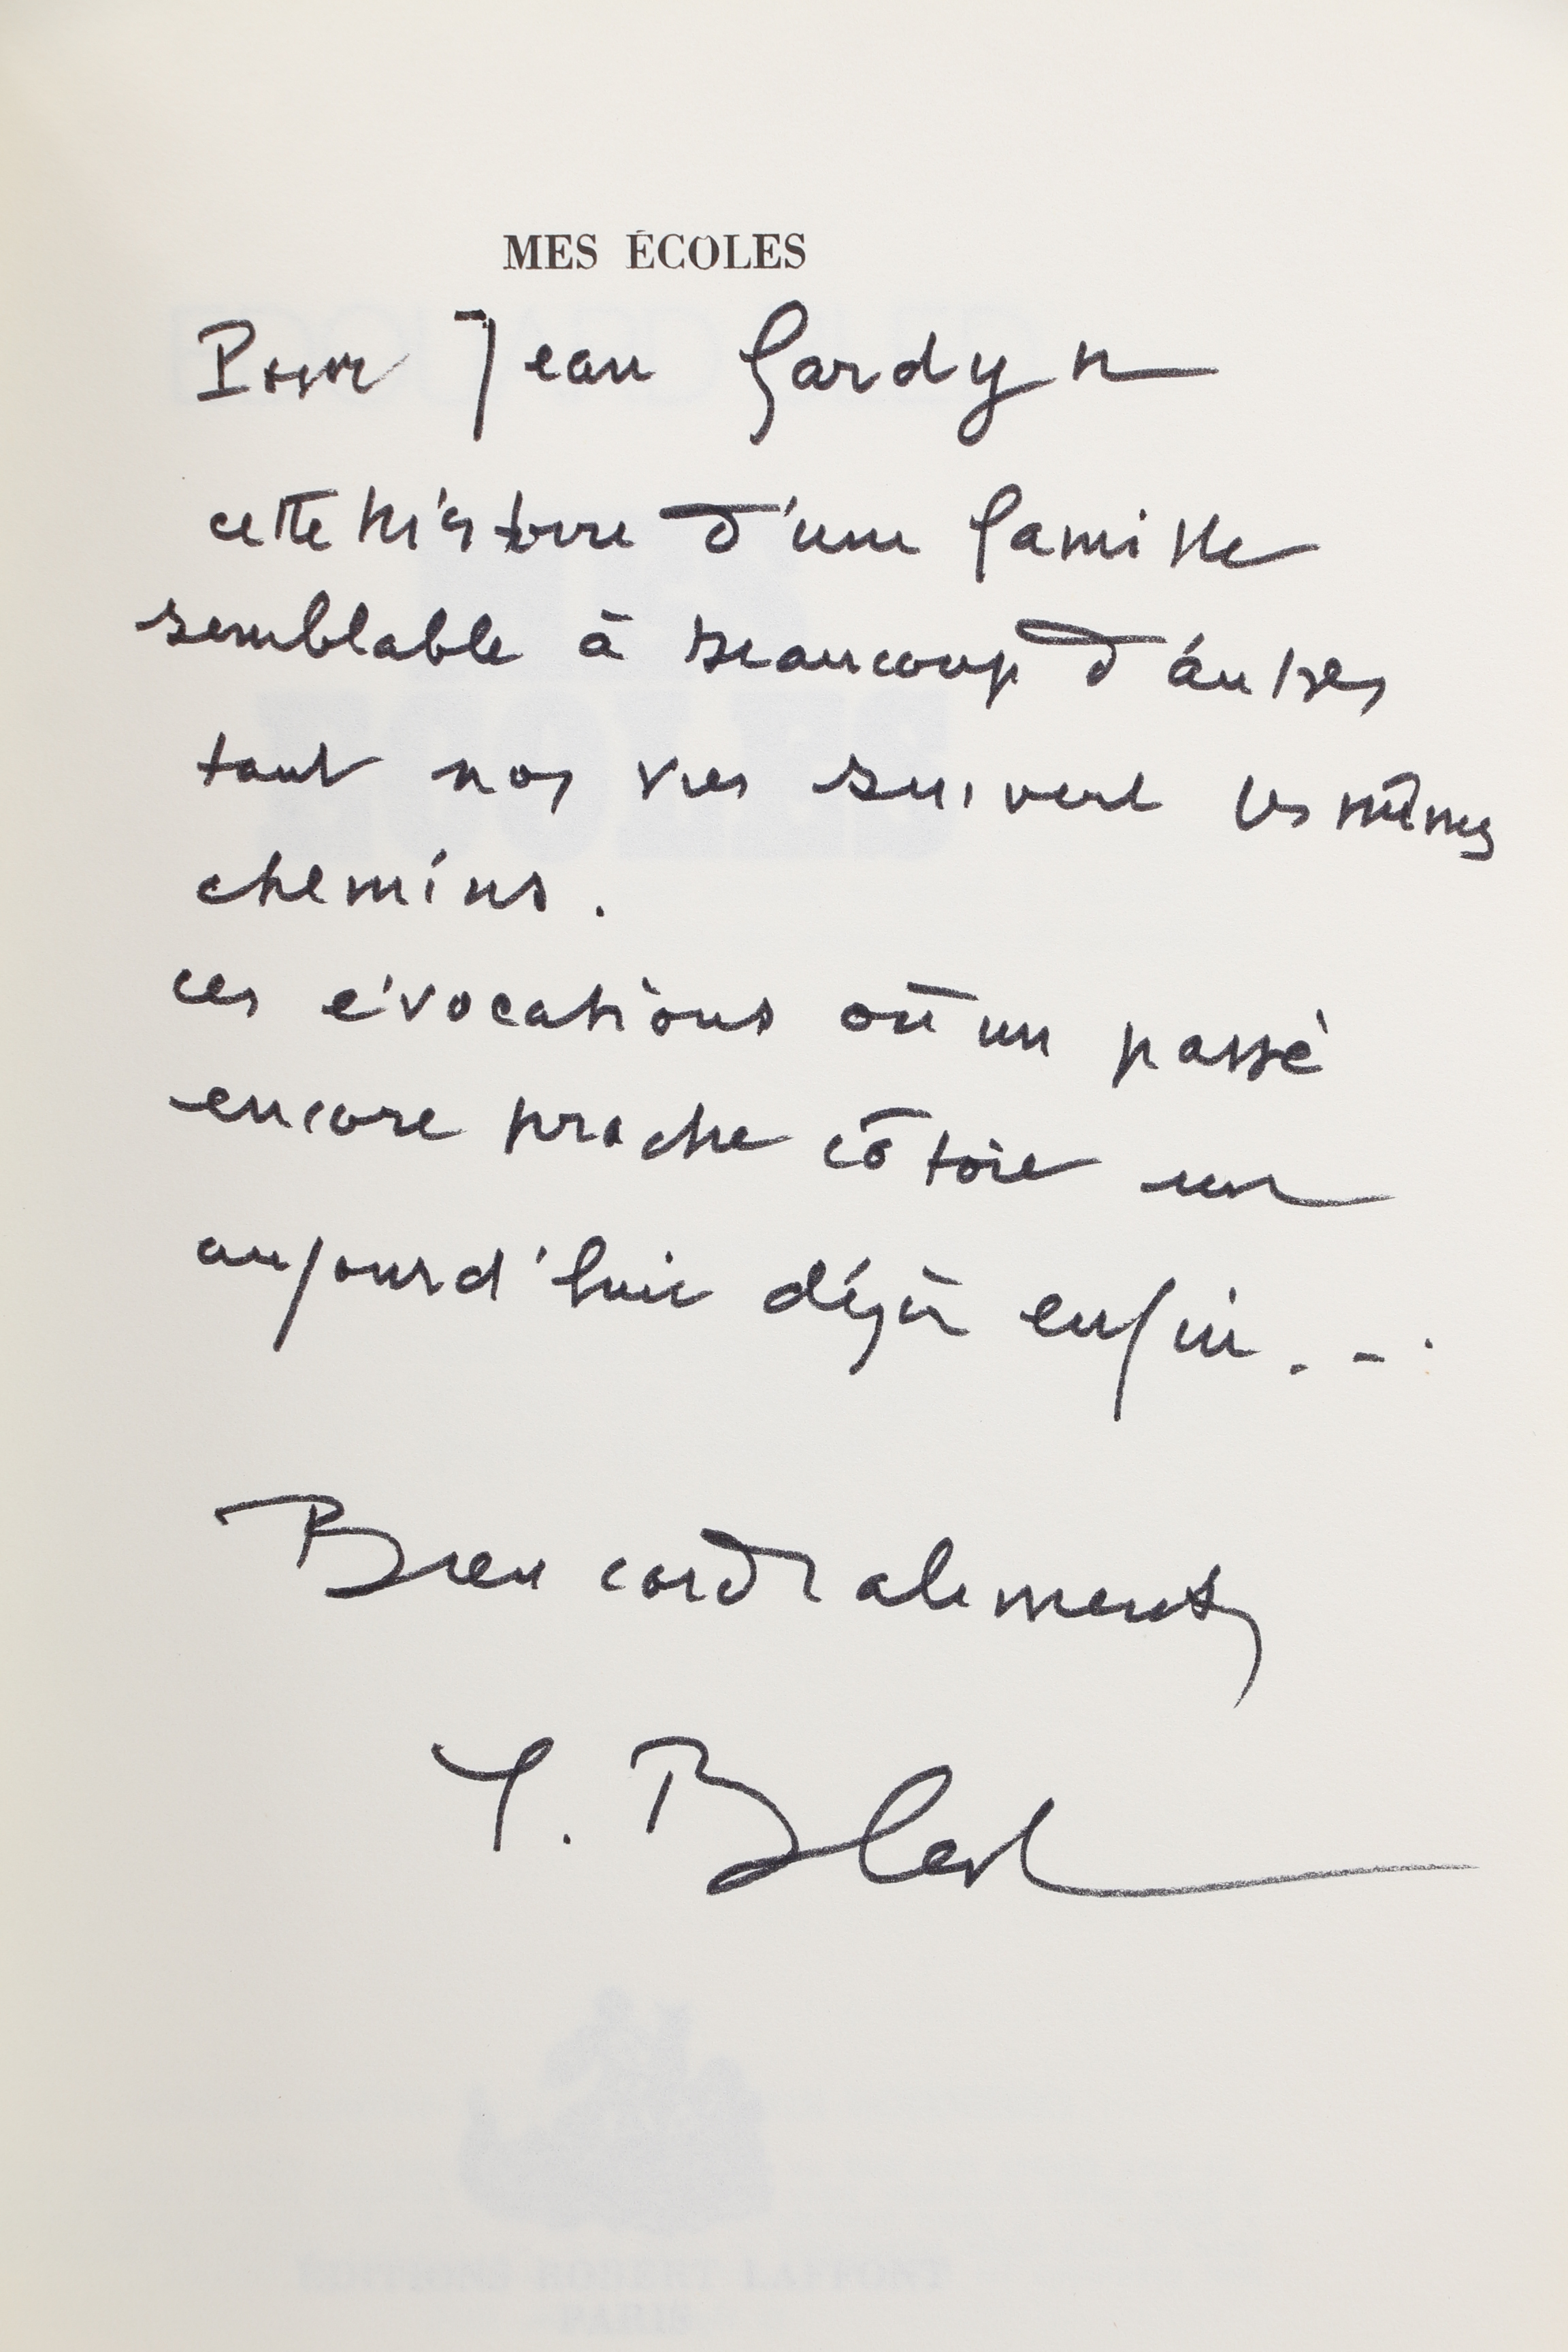 MES ÉCOLES
Pour Jean Gardyn
cette histoire d'une famille
semblable à beaucoup d'autres
tant nos vies suivent les mêmes
chemins.
ces évocations où un passé
encore proche côtoie un
aujourd'hui déjà enfui...
Bien cordialement,
ÉDITIONS ROBERT LAFFONT
PARIS